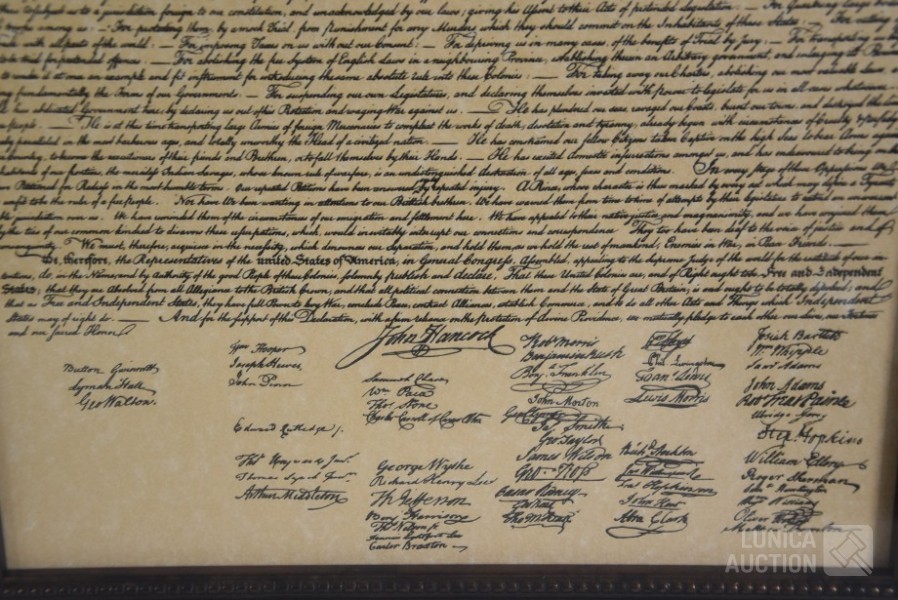 subject us to a jurisdiction foreign to our constitution, and unacknowledged by our laws; giving his Assent to their Acts of pretended Legislation: — For Quartering large
troops among us: — For protecting them, by a mock Trial, from Punishment for any Murders which they should commit on the Inhabitants of these States: — For cutting
trade with all parts of the world: — For imposing Taxes on us without our Consent: — For depriving us in many cases, of the benefits of Trial by Jury: — For transporting
to be tried for pretended offences — For abolishing the free System of English Laws in a neighbouring Province, establishing therein an Arbitrary government, and enlarging its
to render it at once an example and fit instrument for introducing the same absolute rule into these Colonies: — For taking away our Charters, abolishing our most valuable Laws,
fundamentally the Forms of our Governments: — For suspending our own Legislatures, and declaring themselves invested with power to legislate for us in all cases whatsoever.
He has abdicated Government here, by declaring us out of his Protection and waging War against us. — He has plundered our seas, ravaged our Coasts, burnt our towns, and destroyed the lives
people. — He is at this time transporting large Armies of foreign Mercenaries to compleat the works of death, desolation and tyranny, already begun with circumstances of Cruelty & perfidy
paralleled in the most barbarous ages, and totally unworthy the Head of a civilized nation. — He has constrained our fellow Citizens taken Captive on the high Seas to bear Arms against
Country, to become the executioners of their friends and Brethren, or to fall themselves by their Hands. — He has excited domestic insurrections amongst us, and has endeavoured to bring on the
inhabitants of our frontiers, the merciless Indian Savages, whose known rule of warfare, is an undistinguished destruction of all ages, sexes and conditions. In every stage of these Oppressions
Petitioned for Redress in the most humble terms: Our repeated Petitions have been answered by repeated injury. A Prince, whose character is thus marked by every act which may define a Tyrant,
unfit to be the ruler of a free people. Nor have We been wanting in attentions to our British brethren. We have warned them from time to time of attempts by their legislature to extend an unwarrantable
jurisdiction over us. We have reminded them of the circumstances of our emigration and settlement here. We have appealed to their native justice and magnanimity, and we have conjured them
by the ties of our common kindred to disavow these usurpations, which, would inevitably interrupt our connections and correspondence. They too have been deaf to the voice of justice and of
consanguinity. We must, therefore, acquiesce in the necessity, which denounces our Separation, and hold them, as we hold the rest of mankind, Enemies in War, in Peace Friends.
We, therefore, the Representatives of the united States of America, in General Congress, Assembled, appealing to the Supreme Judge of the world for the rectitude of our in-
tentions, do, in the Name, and by Authority of the good People of these Colonies, solemnly publish and declare, That these United Colonies are, and of Right ought to be Free and Independent
States; that they are Absolved from all Allegiance to the British Crown, and that all political connection between them and the State of Great Britain, is and ought to be totally dissolved; and
that as Free and Independent States, they have full Power to levy War, conclude Peace, contract Alliances, establish Commerce, and to do all other Acts and Things which Independent
States may of right do. — And for the support of this Declaration, with a firm reliance on the Protection of divine Providence, we mutually pledge to each other our Lives, our Fortunes
and our sacred Honor.
John Hancock
Button Gwinnett
Lyman Hall
Geo Walton.
Wm Hooper
Joseph Hewes,
John Penn
Edward Rutledge /.
Thos Heyward Junr.
Thomas Lynch Junr.
Arthur Middleton
Samuel Chase
Wm Paca
Thos Stone
Charles Carroll of Carrollton
George Wythe
Richard Henry Lee
Th Jefferson
Benj Harrison
Thos Nelson jr.
Francis Lightfoot Lee
Carter Braxton
Robt Morris
Benjamin Rush
Benj Franklin
John Morton
Geo Clymer
Jas Smith
Geo Taylor
James Wilson
Geo Ross
Caesar Rodney
Geo Read
Tho M:Kean
Phil. Livingston
Lewis Morris
Richd Stockton
Fras Hopkinson
John Hart
Abra Clark
Josiah Bartlett
Wm Whipple
Saml Adams
John Adams
Robt Treat Paine
Elbridge Gerry
Step. Hopkins
William Ellery
Roger Sherman
Saml Huntington
Wm Williams
Oliver Wolcott
Matthew Thornton
LUNICA
AUCTION